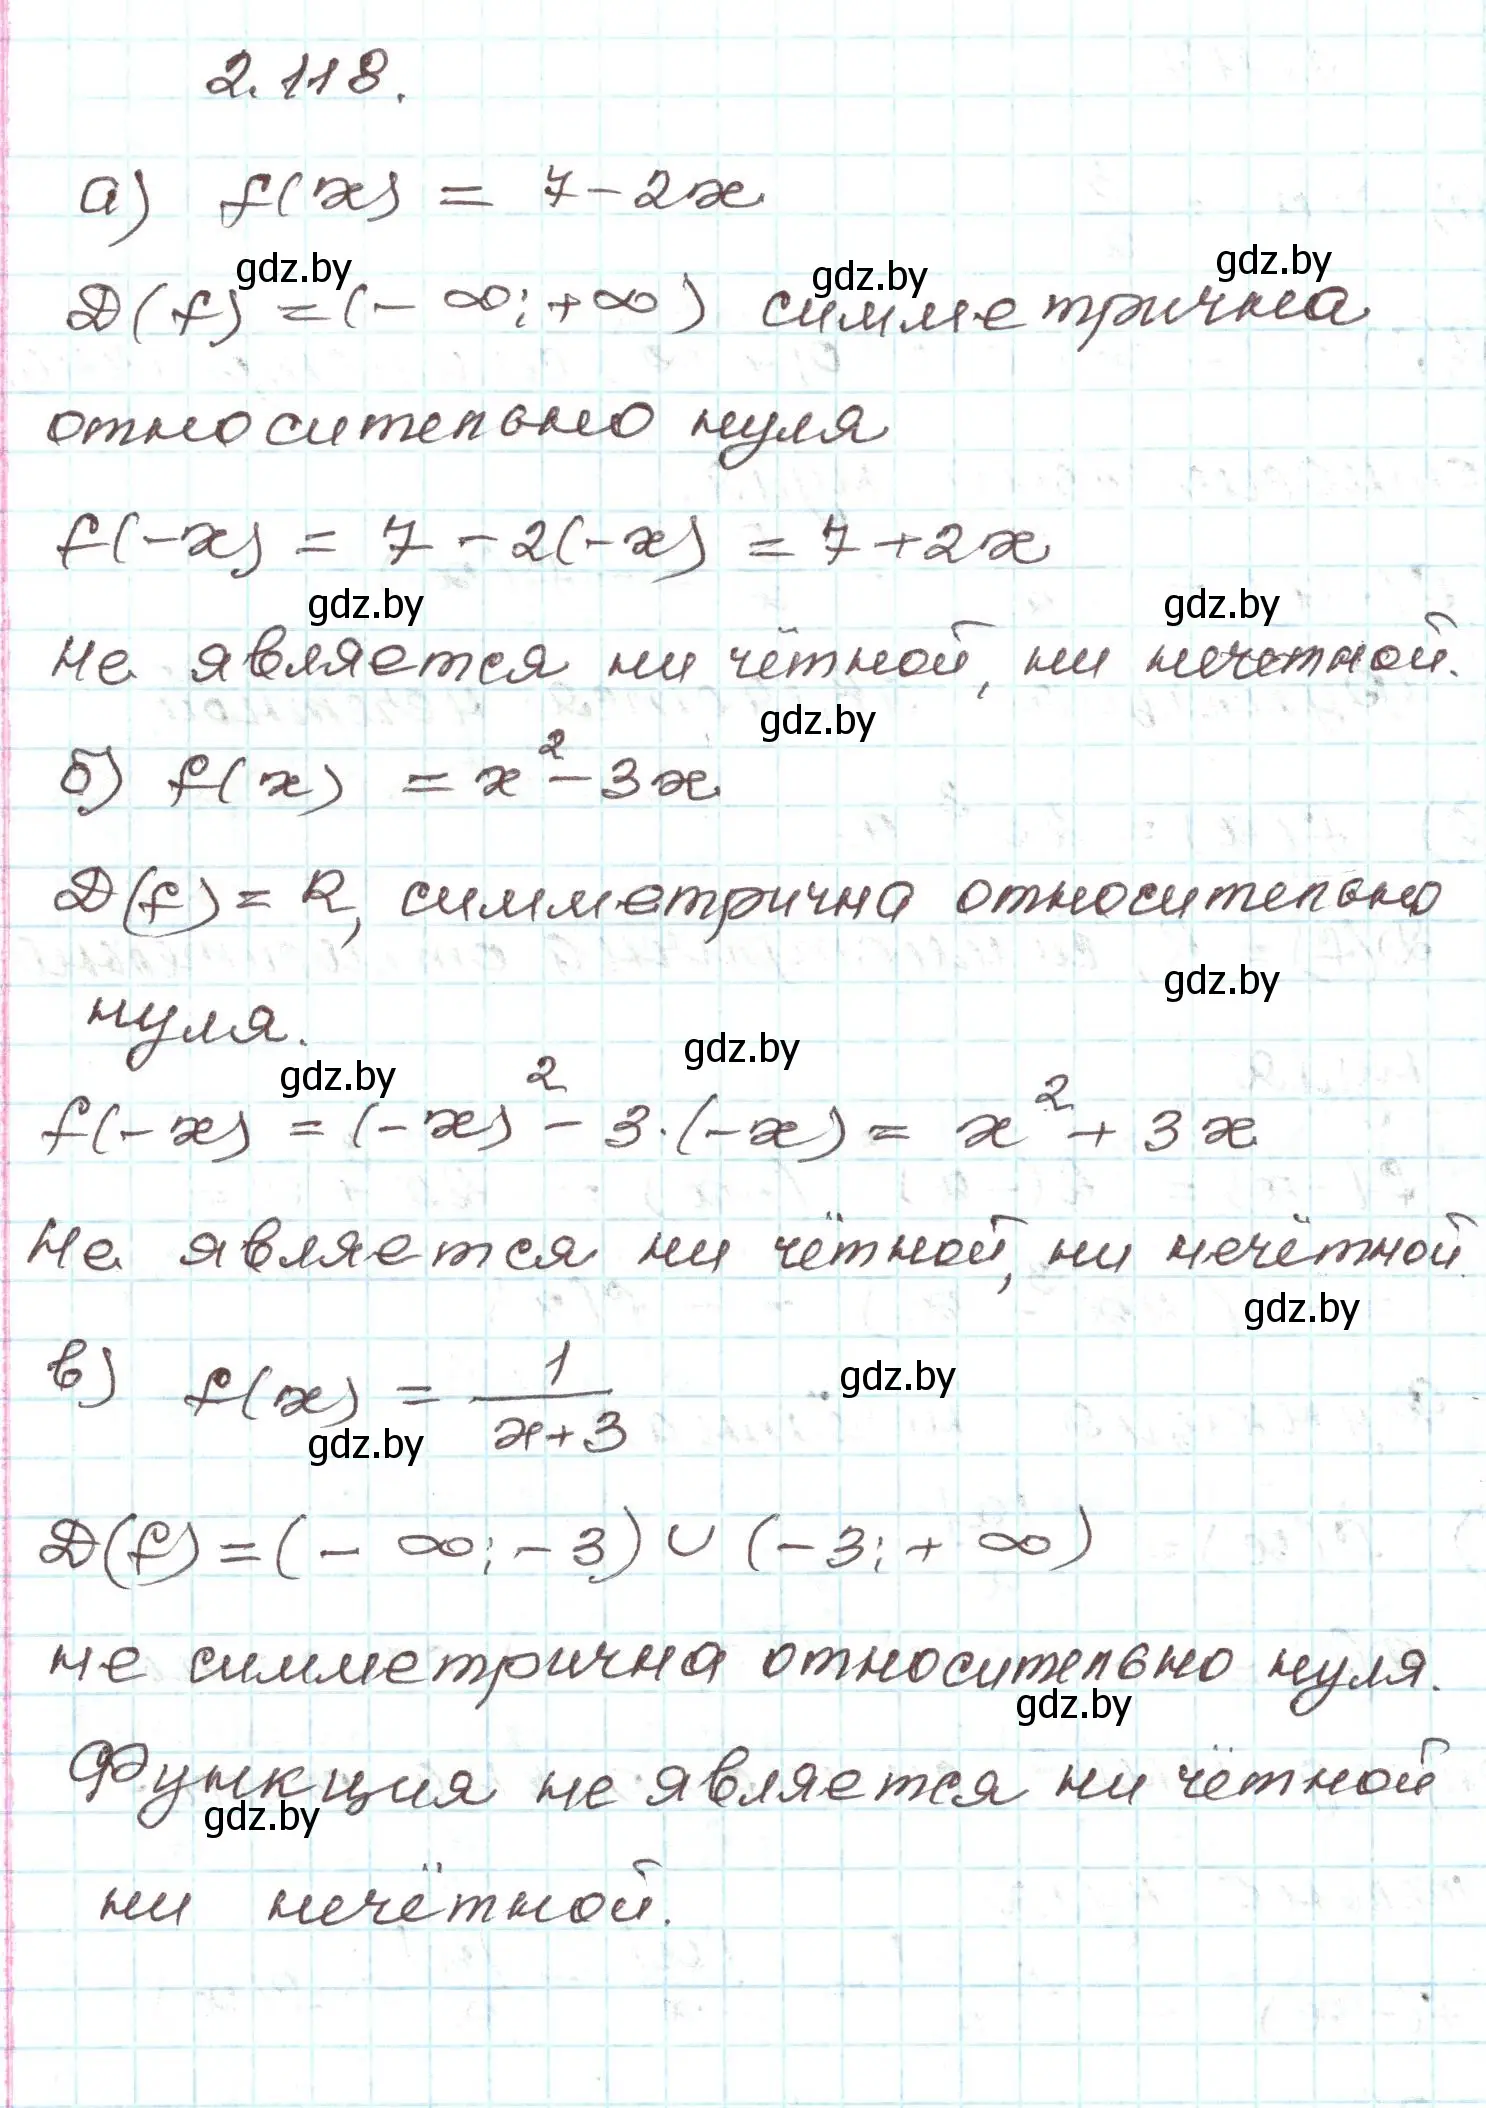 2.118.
а) f(x) = 7 - 2x
gdz.by gdz.by gdz.by
D(f) = (-∞; +∞) симметрична
относительно нуля
f(-x) = 7 - 2(-x) = 7 + 2x
gdz.by gdz.by
Не является ни чётной, ни нечетной.
gdz.by
б) f(x) = x² - 3x
D(f) = R, симметрична относительно
gdz.by
нуля.
gdz.by gdz.by
f(-x) = (-x)² - 3·(-x) = x² + 3x
Не является ни чётной, ни нечётной
gdz.by
в) f(x) = 1/(x+3)
gdz.by
gdz.by
D(f) = (-∞; -3) ∪ (-3; +∞)
не симметрична относительно нуля.
gdz.by
Функция не является ни чётной
gdz.by
ни нечётной.